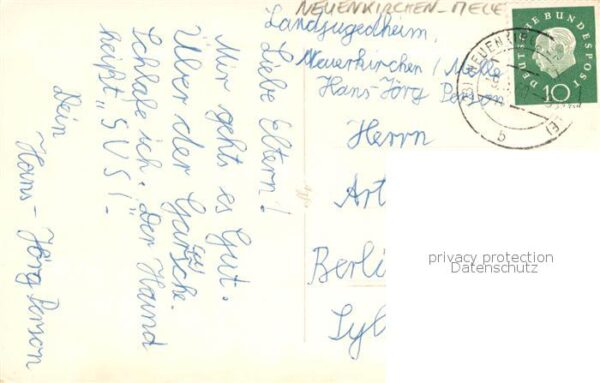 NEUENKIRCHEN-MELLE
Landjugedheim.
Neuerkirchen / Melle
Hans-Jörg Person
Herrn
Art
Berli
Syl
DEUTSCHE BUNDESPOST
10
b
privacy protection
Datenschutz
Liebe Eltern!
Mir gehts es Gut.
Über der Gar
Schlafe ich. Der Hund
heißt „SUSI“-
Dein
Hans-Jörg Person